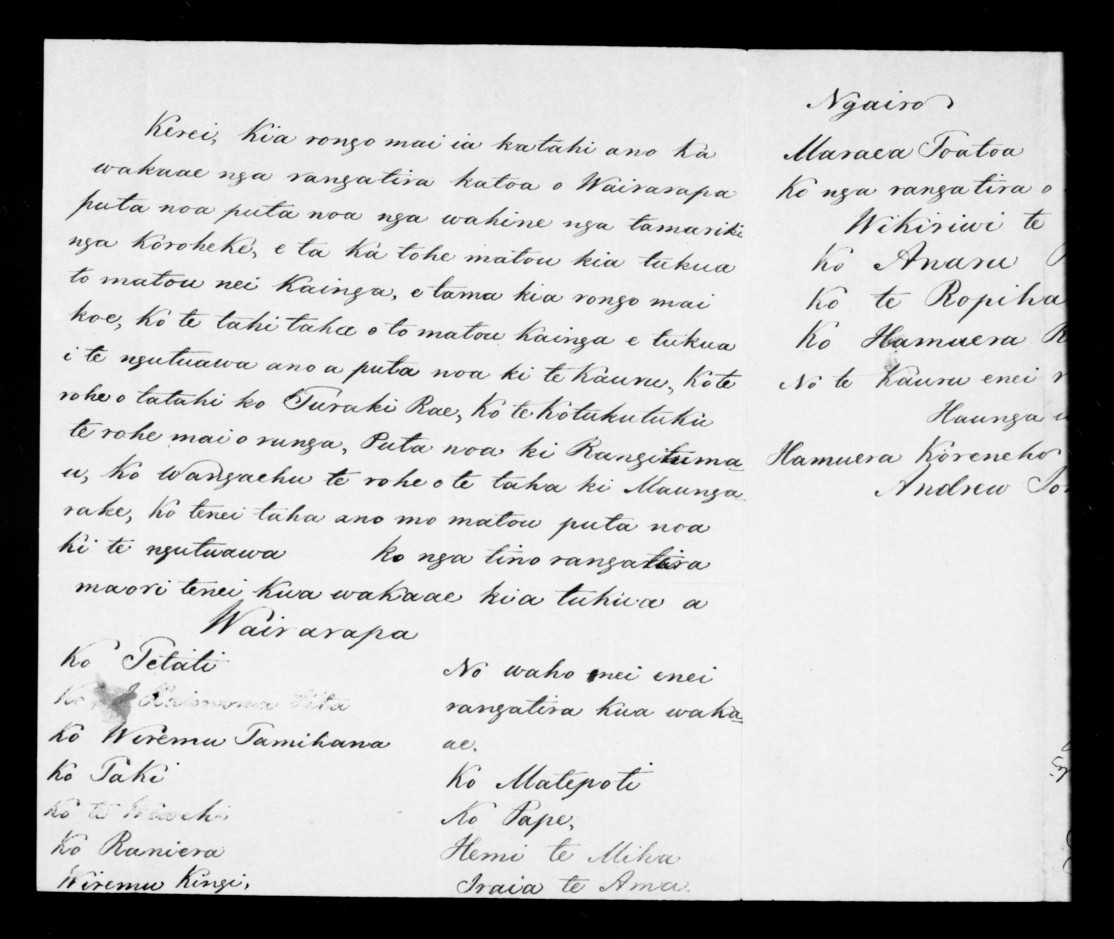 Kerei, Kia rongo mai ia katahi ano Ka
wakaae nga rangatira katoa o Wairarapa
puta noa puta noa nga wahine nga tamariki
nga Koroheke, e ta Ka tohe matou kia tukua
to matou nei Kainga, e tama kia rongo mai
koe, Ko te tahi taha o to matou Kainga e tukua
i te ngutuawa ano a puta noa ki te Kauru, Ko te
rohe o tatahi ko Turaki Rae, Ko te Kotukutuku
te rohe mai o runga, Puta noa ki Rangituma-
u, Ko Wangaehu te rohe o te taha ki Maunga
rake, Ko tenei taha ano mo matou puta noa
ki te ngutuawa ko nga tino rangatira
maori tenei Kua wakaae kia tukua a
Wairarapa
Ko Tetati
Ko
Ko Wiremu Tamihana
Ko Taki
Ko te
Ko Raniera
Wiremu Kingi,
No waho mei enei
rangatira kua waka-
ae.
Ko Matepoti
Ko Pape,
Hemi te Miha
Iraia te Ama.
Ngairo
Maraea Toatoa
Ko nga rangatira o
Wikiriwi te
Ko Anaru
Ko te Ropiha
Ko Hamuera
No te Kauru enei
Haunga
Hamuera Koreneho
Andrew